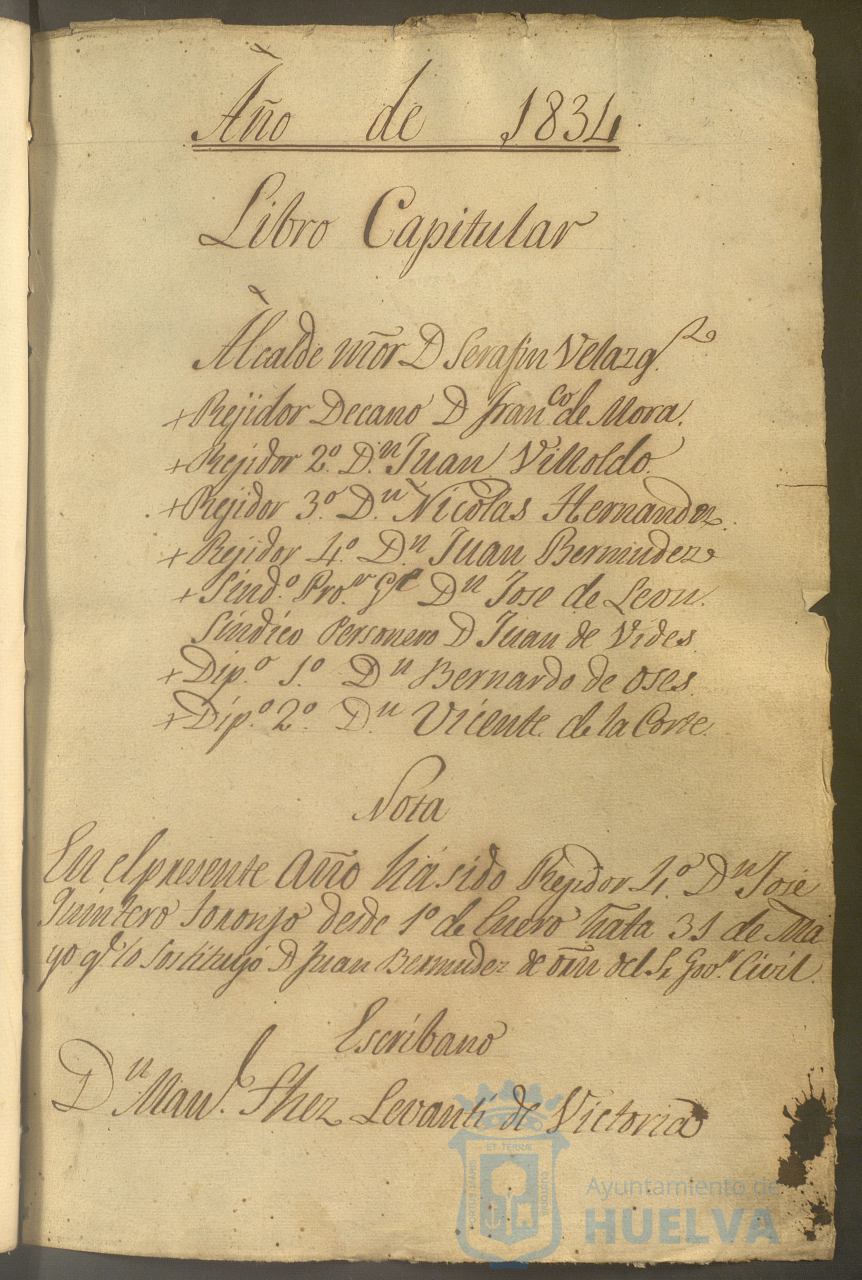 Año de 1834
Libro Capitular
Alcalde mõr D Serafin Velazq.^z
+ Rejidor Decano D Fran.^co de Mora.
+ Rejidor 2.º D.^n Juan Villoldo.
+ Rejidor 3.º D.^n Nicolas Hernandez.
+ Rejidor 4.º D.^n Juan Bermudez
+ Sind.º Pro.^or G^l D^n Jose de Leon.
Sindico Personero D Juan de Vides.
+ Dip.º 1.º D^n Bernardo de Oses.
+ Dip.º 2.º D.^n Vicente de la Corte.
Nota
En el presente Año há sido Rejidor 4.º D^n José
Quintero desde 1º de Enero hasta 31 de Ma
yo q.^e lo sostituyó D Juan Bermudez de orñ del S.^r Gov.^r Civil.
Escribano
D^n Man.^l Shez Levanti de Victoria
PORTUS MARIS ET TERRAE CUSTODIA
Ayuntamiento de
HUELVA